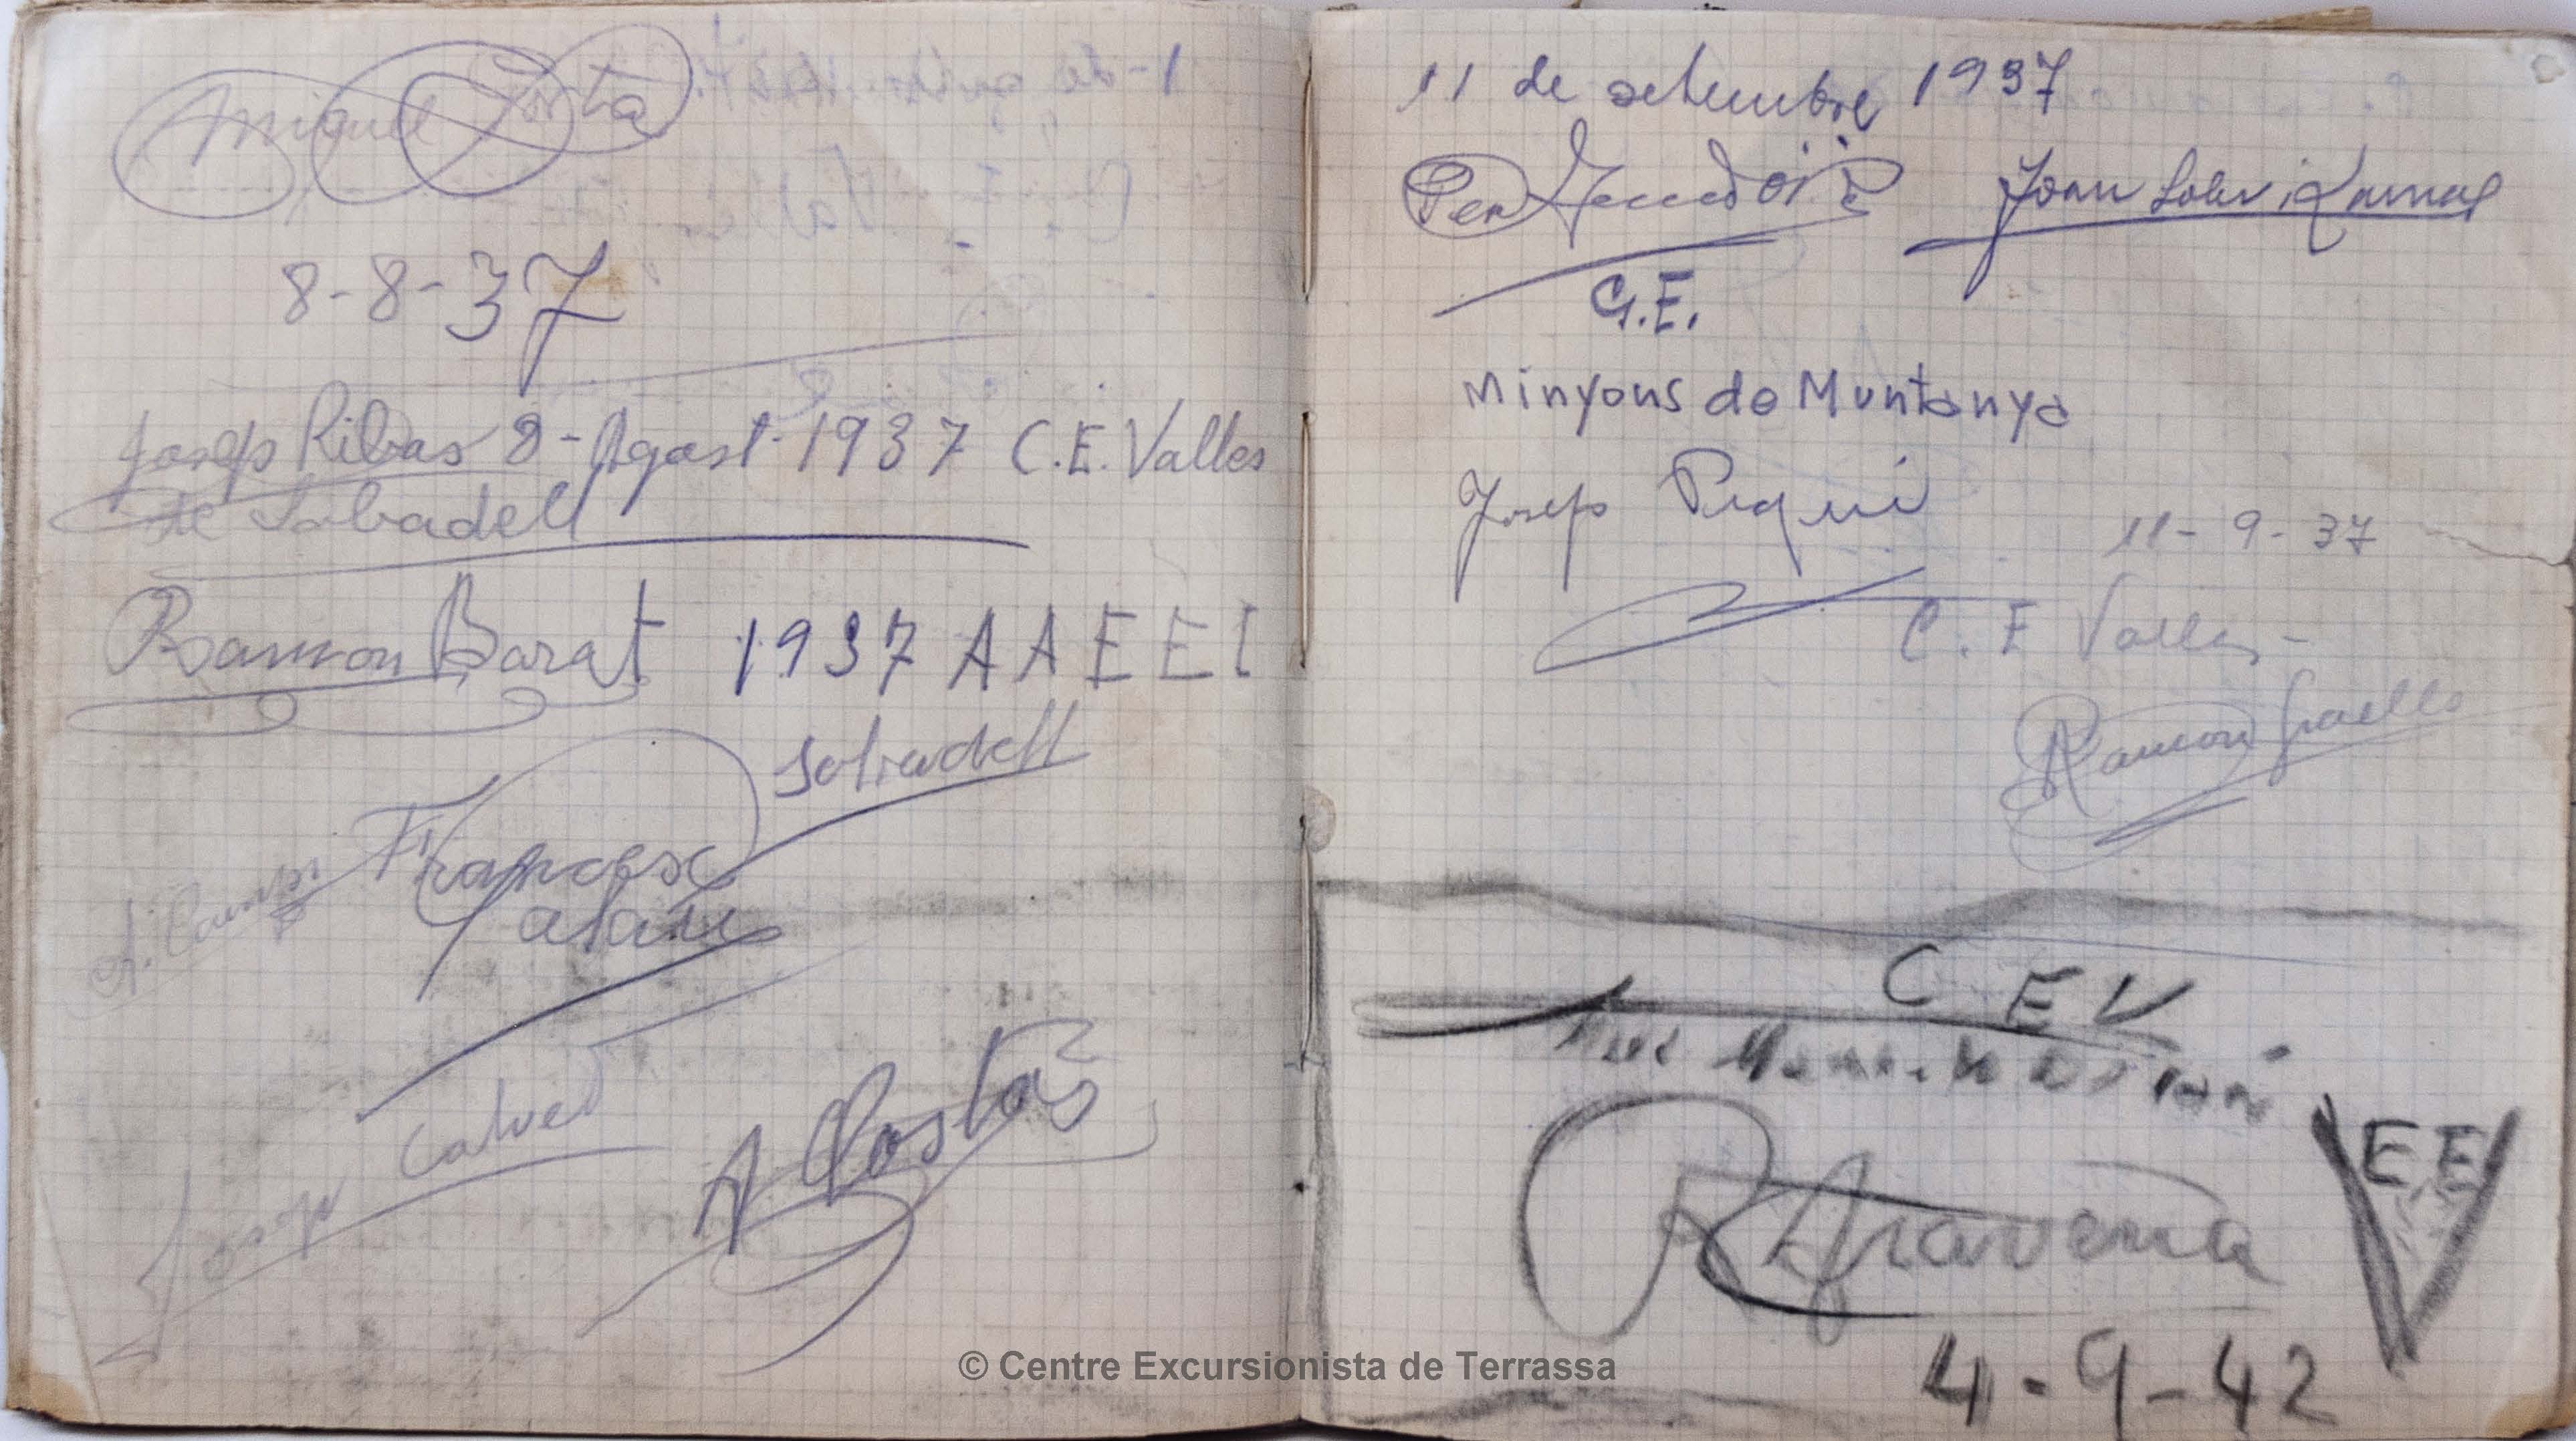 Miquel Porta
8-8-37
Josep Ribas 8-Agost-1937 C.E. Valles
de Sabadell
Ramon Barat 1937 A A E E E
Sabadell
Francesc
Josep Calvet
A Costas
11 de setembre 1937
Pere
Joan Soler i
G.E.
Minyons de Muntanya
Josep Piqué
11-9-37
C. E Valles-
Ramon Graells
C E V
E E
V
4-9-42
© Centre Excursionista de Terrassa